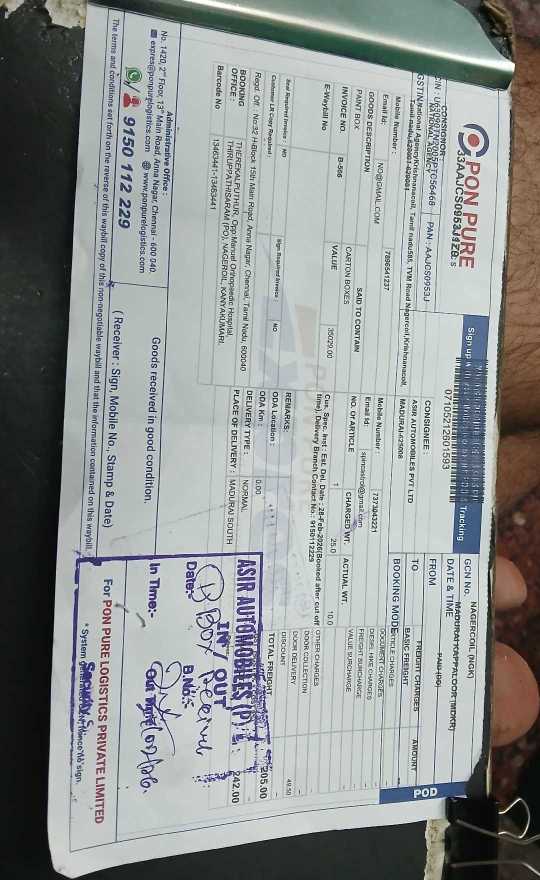 PON PURE
CIN : U63090TN2005PTC056468 PAN : AAJCS0953J
33AAJCS0953J1ZB
Sign up
Tracking
07105212801593
POD
GCN No.
DATE & TIME
FROM NAGERCOIL (NGK)
TO MADURAI KAPPALOOR (MDKR)
BOOKING MODE PAID
CONSIGNOR :
NATIONAL AGENCY
National Agency Krishnanacoil, Tamil nadu585, TVM Road Nagercoil, Krishnancoil,
Tamil nadu
Mobile Number : 7866541237
Email Id: NO@GMAIL.COM
CONSIGNEE :
ASIR AUTOMOBILES PVT LTD
MADURAI-625008
Mobile Number : 7373043221
Email Id:
GOODS DESCRIPTION SAID TO CONTAIN NO. OF ARTICLE CHARGED WT. ACTUAL WT.
PAINT BOX CARTON BOXES 1 25.0 10.0
INVOICE NO. B-566 VALUE 35029.00
E-Waybill No
Cus. Spec. Inst : Est. Del. Date : 28-Feb-2026(Booked after cut off
time), Delivery Branch Contact No.: 9150112229
Seal Required Invoice : NO Sign Required Invoice : NO
Customer LR Copy Required :
REMARKS:
ODA Location :
ODA Km : 0.00
Regd. Off. No:32 H-Block 15th Main Road, Anna Nagar, Chennai, Tamil Nadu, 600040
DELIVERY TYPE : NORMAL
BOOKING OFFICE : THEREKALPUTHUR, Opp.Manuel Orthopaedic Hospital,
THIRUPPATHSARAM (PO), NAGERCOIL, KANYAKUMARI.
PLACE OF DELIVERY : MADURAI SOUTH
Barcode No 13463441-13463441
FREIGHT CHARGES AMOUNT
BASIC FREIGHT
DOCUMENT CHARGES
DIESEL HIKE CHARGES
FREIGHT SURCHARGE
VALUE SURCHARGE
OTHER CHARGES
DOOR COLLECTION
DOOR DELIVERY
DISCOUNT 49.50
TOTAL FREIGHT 205.00
242.00
Administrative Office :
No. 1420, 2nd Floor, 13th Main Road, Anna Nagar, Chennai - 600 040.
expres@ponpurelogistics.com @ www.ponpurelogistics.com
9150 112 229
Goods received in good condition.
( Receiver : Sign, Mobile No., Stamp & Date)
ASIR AUTOMOBILES (P) L
IN / OUT
Date:-
B.No:-
In Time:-
Out Time
① Box Received
For PON PURE LOGISTICS PRIVATE LIMITED
The terms and conditions set forth on the reverse of this waybill copy of this non-negotiable waybill and that the information contained on this waybill.